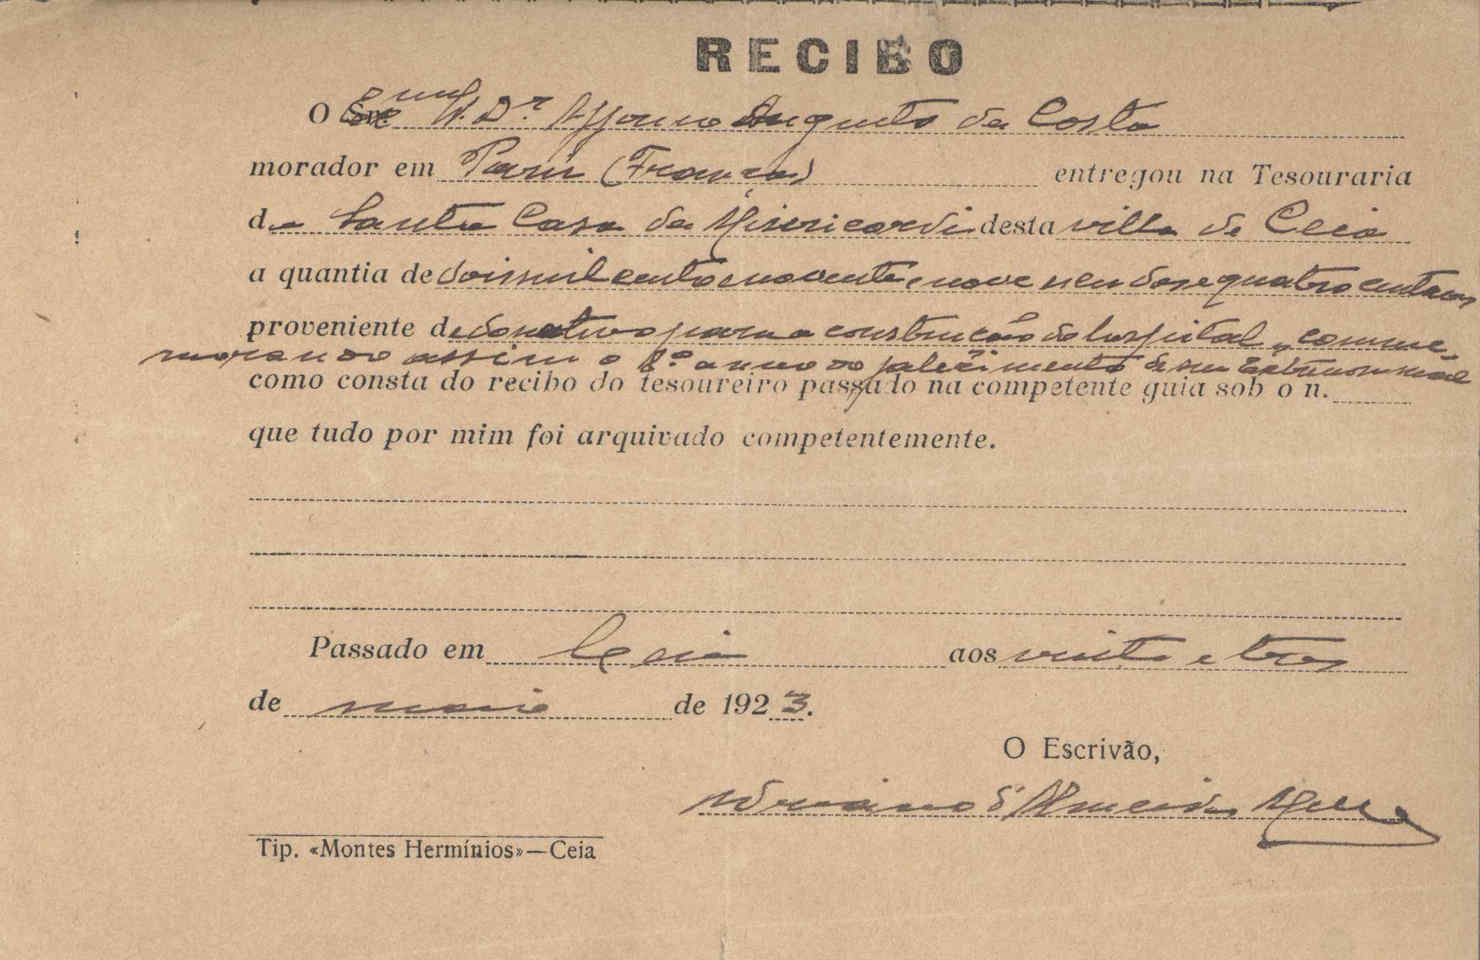 RECIBO
O Exmo Sr. Dr. Affonso Augusto da Costa
morador em Paris (França) entregou na Tesouraria
da Santa Casa da Misericordia desta villa de Ceia
a quantia de dois mil cento e noventa e nove escudos e quatro centavos
proveniente de donativo para a construcção do hospital, comme-
morando assim o 1º anno do falecimento de sua Extremosa mãe
como consta do recibo do tesoureiro passado na competente guia sob o n.
que tudo por mim foi arquivado competentemente.
Passado em Ceia aos vinte e tres
de maio de 1923.
O Escrivão,
Adriano d'Almeida Mello
Tip. «Montes Hermínios»—Ceia